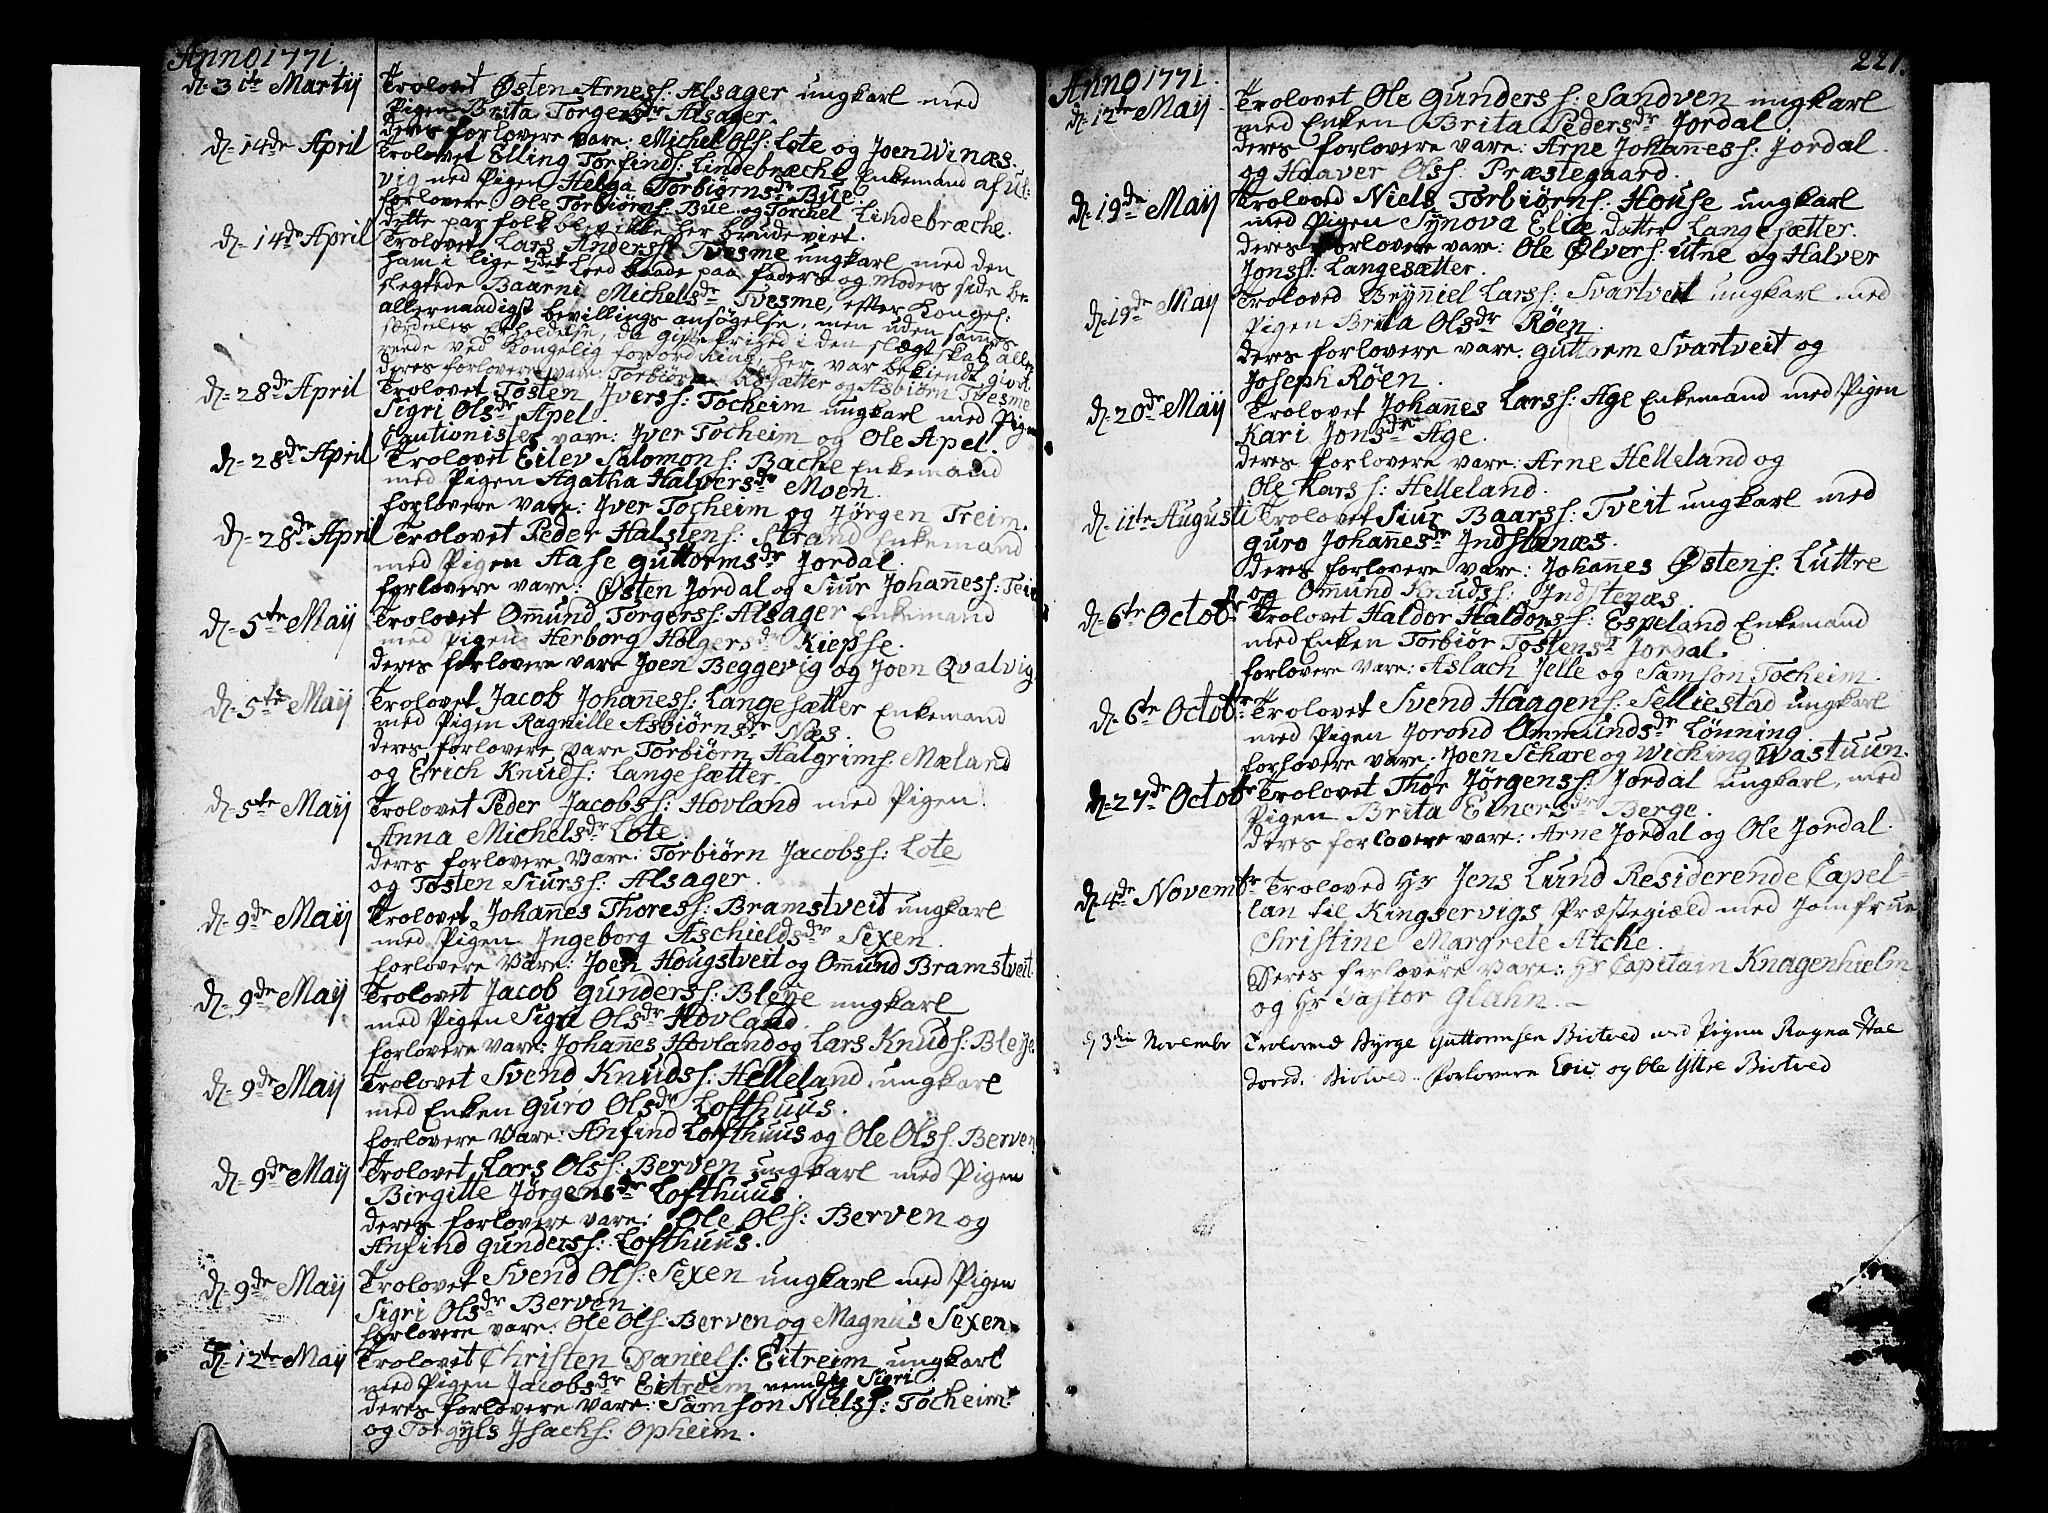 Anno 1771.
d. 31te Martij Trolovet Østen Arness: Alsager ungkarl med
Pigen Brita Torgersdr Alsager.
deres forlovere vare: Michel Ols: Lote og Joen Winæs.
d. 14de April Trolovet Elling Torfinds: Lindebræche Enkemand af Ul-
vig med Pigen Helga Torbiørnsdr Bue.
forlovere Ole Torbiørns: Bue og Torchel Lindebræche.
dette par folk blev ikke her brudeviet.
d. 14de April Trolovet Lars Anderss: Tvesme ungkarl med den
ham i lige 2det Leed baade paa faders og moders side be-
slegtede Baarni Michelsdr Tvesme, efter Konges:
allernaadigst bevillings ansøgelse, men uden sammes
særdeles erholdelse, da gifte frihed i den slægtskab aller-
reede ved Kongelig forordning her var bekiendt giort.
deres forlovere vare: Torbiørn Aasætter og Asbiørn Tvesme
d. 28de April Trolovet Tosten Ivers: Tocheim ungkarl med Pigen
Sigri Olsdr Apel.
Cautionister vare: Iver Tocheim og Ole Apel.
d. 28de April Trolovet Eilev Salomons: Bache Enkemand
med Pigen Agatha Halversdr Moen.
forlovere vare: Iver Tocheim og Jørgen Freim.
d. 28de April Trolovet Peder Halstens: Strand Enkemand
med Pigen Aase Guttormsdr Jordal.
forlovere vare: Østen Jordal og Siur Johanness: Teie
d. 5te Maij Trolovet Ommund Torgerss: Alsager Enkemand
med Pigen Herborg Holgersdr Kiepse.
deres forlovere vare Joen Beggevig og Joen Qvalvig
d. 5te Maij Trolovet Jacob Johanness: Langesætter Enkemand
med Pigen Ragnille Asbiørnsdr Næs.
deres forlovere vare Torbiørn Halgrims: Mæland
og Erich Knuds: Langesætter.
d. 5te Maij Trolovet Peder Jacobss: Hovland med Pigen
Anna Michelsdr Lote.
deres forlovere vare: Torbiørn Jacobss: Lote
og Tosten Siurss: Alsager.
d. 9de Maij Trolovet Johannes Thoress: Bramstveit ungkarl
med Pigen Ingeborg Aschieldsdr Sexen.
forlovere vare: Joen Hougstveit og Ommund Bramstveit.
d. 9de Maij Trolovet Jacob Gunderss: Bleije ungkarl
med Pigen Sigri Olsdr Hovland.
forlovere vare: Johannes Hovland og Lars Knuds: Bleije
d. 9de Maij Trolovet Svend Knuds: Helleland ungkarl
med Enken Guro Olsdr Lofthuus.
forlovere vare: Anfind Lofthuus og Ole Olss: Berven
d. 9de Maij Trolovet Lars Olss: Berven ungkarl med Pigen
Birgitte Jørgensdr Lofthuus.
deres forlovere vare: Ole Ols: Berven og
Anfind Gunderss: Lofthuus.
d. 9de Maij Trolovet Svend Ols: Sexen ungkarl med Pigen
Sigri Olsdr Berven.
forlovere vare: Ole Ols: Berven og Magnus Sexen.
d. 12te Maij Trolovet Christen Daniels: Eitreim ungkarl
med Pigen Jacobsdr Eitreim nemlig Sigri.
deres forlovere vare: Samson Nielss: Tocheim
og Torgyls Isachs: Opheim.
221.
Anno 1771.
d. 12te Maij Trolovet Ole Gunders s: Sandven ungkarl
med Enken Brita Pedersdr Jordal
deres forlovere vare: Arne Johanness: Jordal.
og Haaver Olss: Præstegaard.
d. 19de Maij Troloved Niels Torbiørns: House ungkarl
med Pigen Synova Eliæ datter Langesætter.
deres forlovere vare: Ole Ølvers: Utne og Halver
Jonss: Langesætter.
d. 19de Maij Troloved Brynniel Larss: Svartveit ungkarl med
Pigen Brita Olsdr Røen.
deres forlovere vare: Guttorm Svartveit og
Joseph Røen.
d. 20de Maij Trolovet Johannes Larss: Age Enkemand med Pigen
Kari Jonsdr Age.
deres forlovere vare: Arne Helleland og
Ole Lars s: Helleland.
d. 11te Augusti Trolovet Siur Baarss: Tveit ungkarl med
Guro Johannesdr Indstenæs.
deres forlovere vare: Johannes Østens: Luttre
og Ommund Knudss: Indstenæs
d. 6te Octobr Trolovet Haldor Haldorss: Espeland Enkemand
med Enken Torbiør Tostensdr Jordal.
forlovere vare: Aslach Jelle og Samson Tocheim.
d. 6te Octobr Trolovet Svend Haagens: Selliestad ungkarl
med Pigen Jorond Ommundsdr Lønning.
forlovere vare: Joen Schare og Wiching Wastuun.
d. 27de Octobr Trolovet Thor Jørgenss: Jordal ungkarl, med
Pigen Brita Einersdr Berge.
deres forlovere vare: Arne Jordal og Ole Jordal.
d. 4de Novembr Troloved Hr Jens Lund Residerende Capel-
lan til Kingservigs Præstegiæld med Jomfrue
Christine Margrete Atche.
Deres forlovere vare: Hr Capitain Knagenhielm
og Hr Pastor Glahn.
d 3die Novembr Troloved Byrge Guttormsen Biotved med Pigen Ragna Hal
dorsd. Biotved. Forlovere Eric og Ole Yttre Biotved